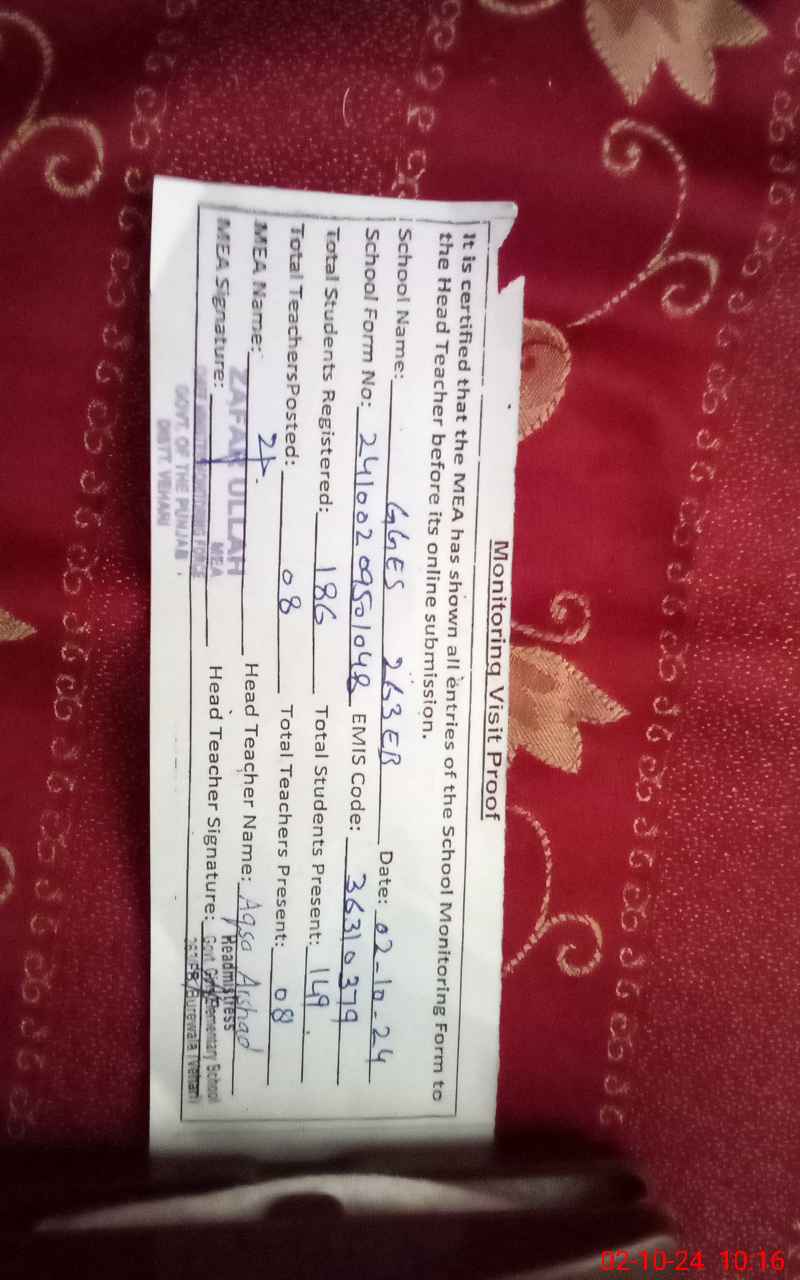 Monitoring Visit Proof
It is certified that the MEA has shown all entries of the School Monitoring Form to
the Head Teacher before its online submission.
School Name: GGES 263EB Date: 02-10-24
School Form No: 24100209501048 EMIS Code: 36310379
Total Students Registered: 186 Total Students Present: 149.
Total TeachersPosted: 08 Total Teachers Present: 08
MEA Name: Head Teacher Name: Aqsa Arshad
ZAFAR ULLAH
MEA
MEA Signature: Head Teacher Signature:
GOVT. OF THE PUNJAB
DISTT. VEHARI
Headmistress
Govt. Girls Elementary School
Burewala (Vehari)
02-10-24 10:16